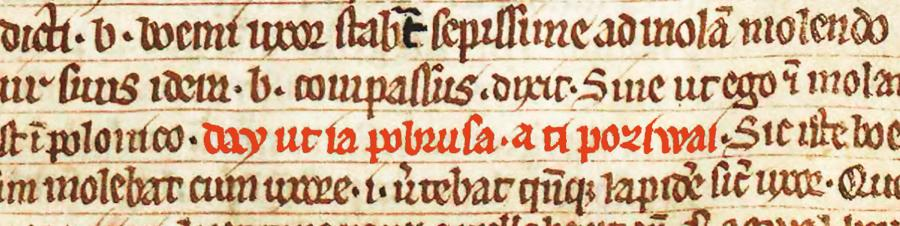 dicti · b · boemi uxor stab̄t sepissime ad molā molendo
uir suus idem · b · compassus · dixit · Sine ut ego ī mola
st ī polonico · day ut ia pobrusa · a ti poziwai · Sic iste boe
im molebat cum uxore · i · ūtebat qn̄q; lapidē sic̄ uxor · Quo